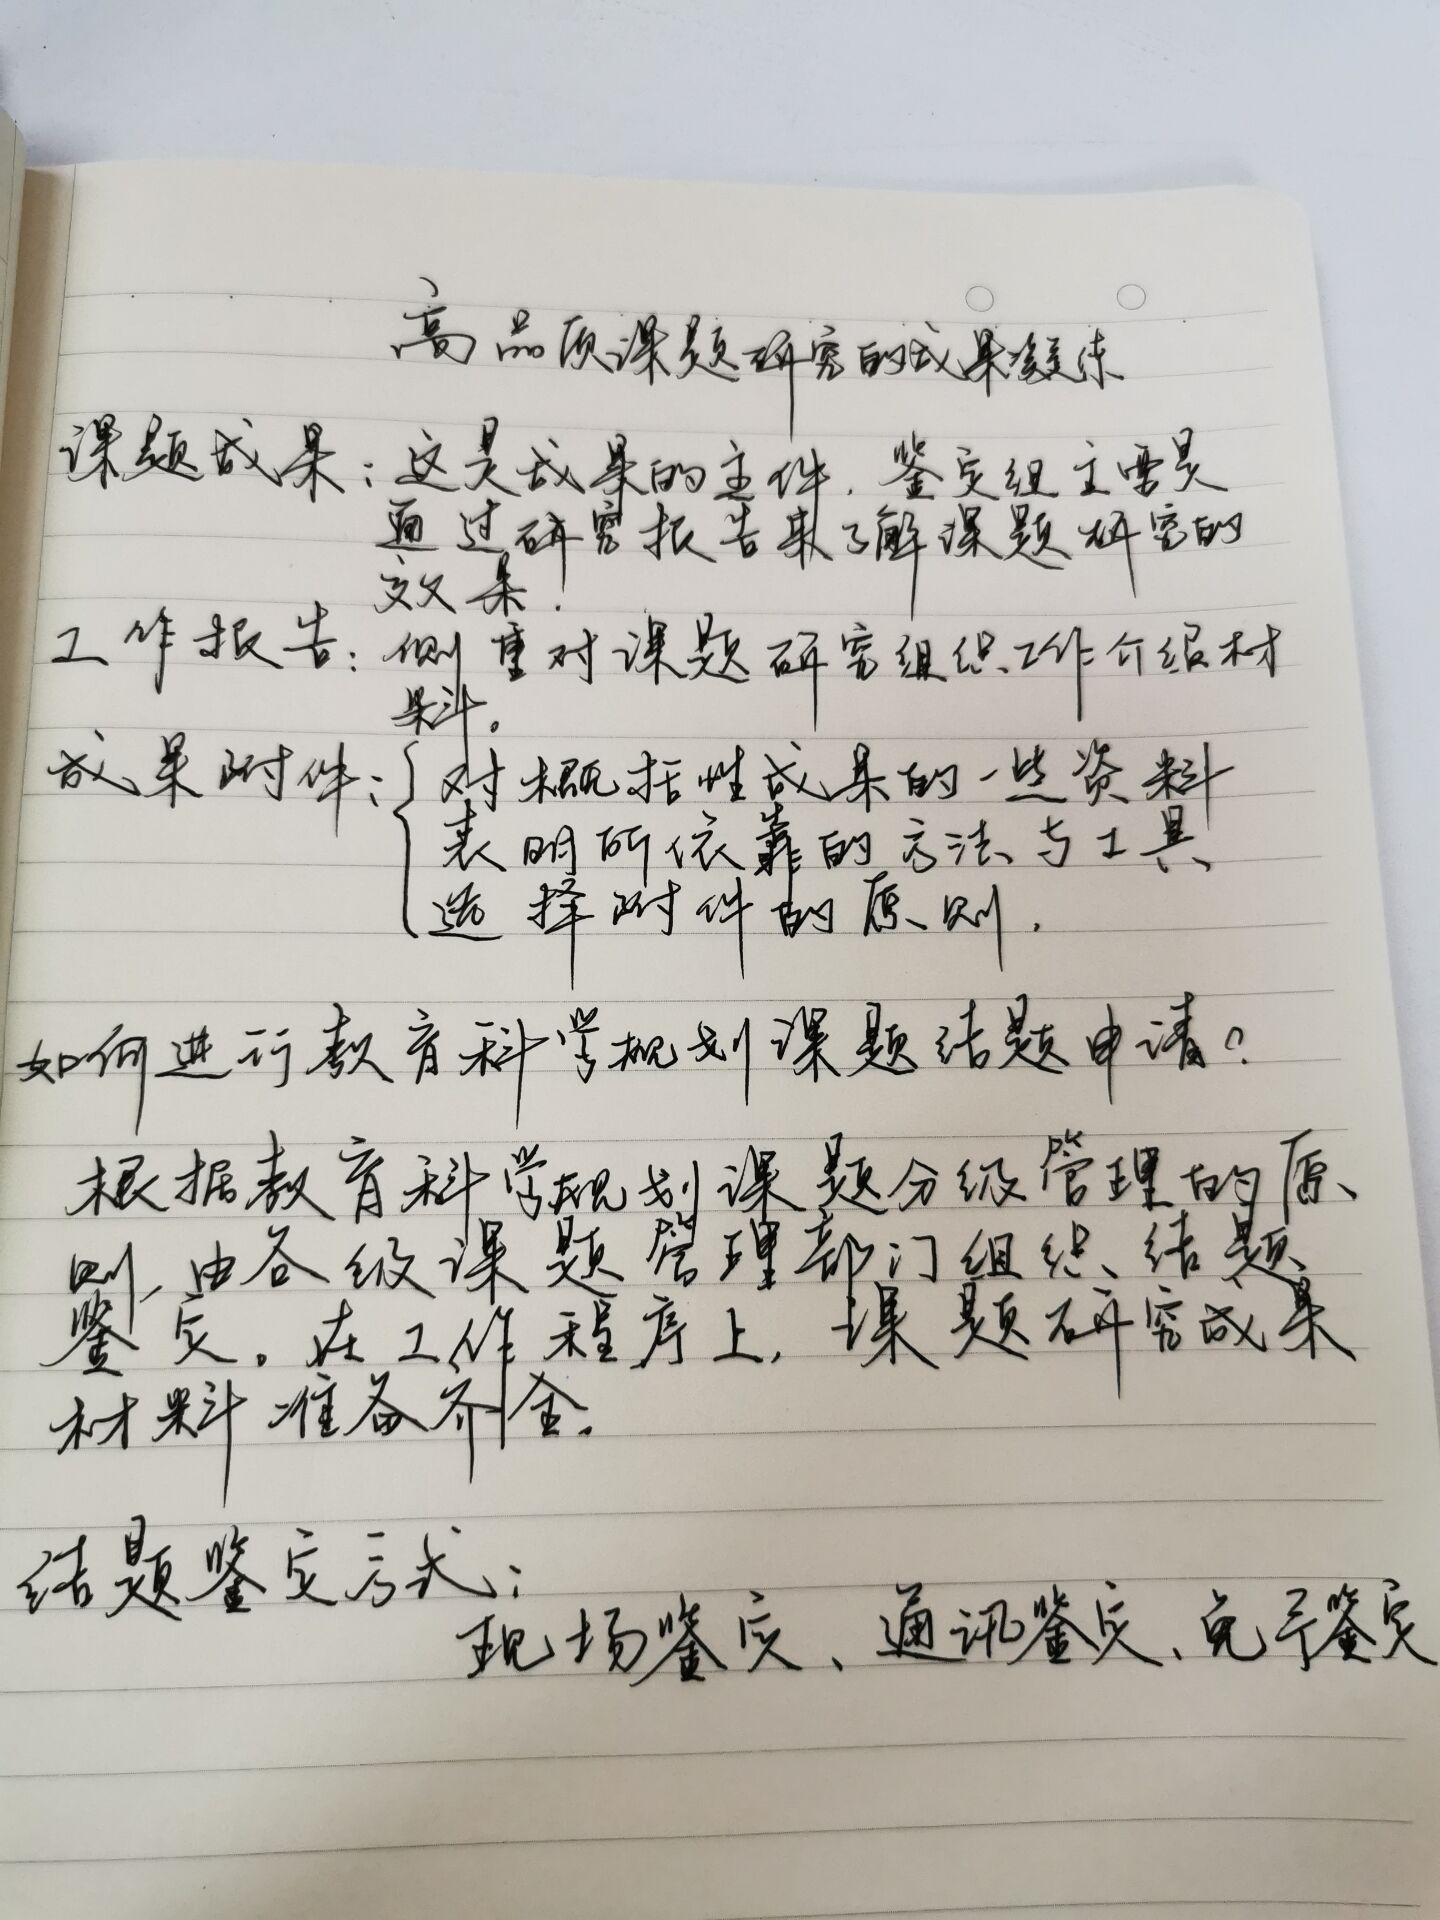 高品质课题研究的成果凝练
课题成果：这是成果的主件，鉴定组主要是
通过研究报告来了解课题研究的
效果.
工作报告：侧重对课题研究组织工作介绍材
料。
成果附件：对概括性成果的一些资料
表明所依靠的方法与工具
选择附件的原则.
如何进行教育科学规划课题结题申请？
根据教育科学规划课题分级管理的原
则,由各级课题管理部门组织结题
鉴定。在工作程序上,课题研究成果
材料准备齐全.
结题鉴定方式：
现场鉴定、通讯鉴定、免于鉴定